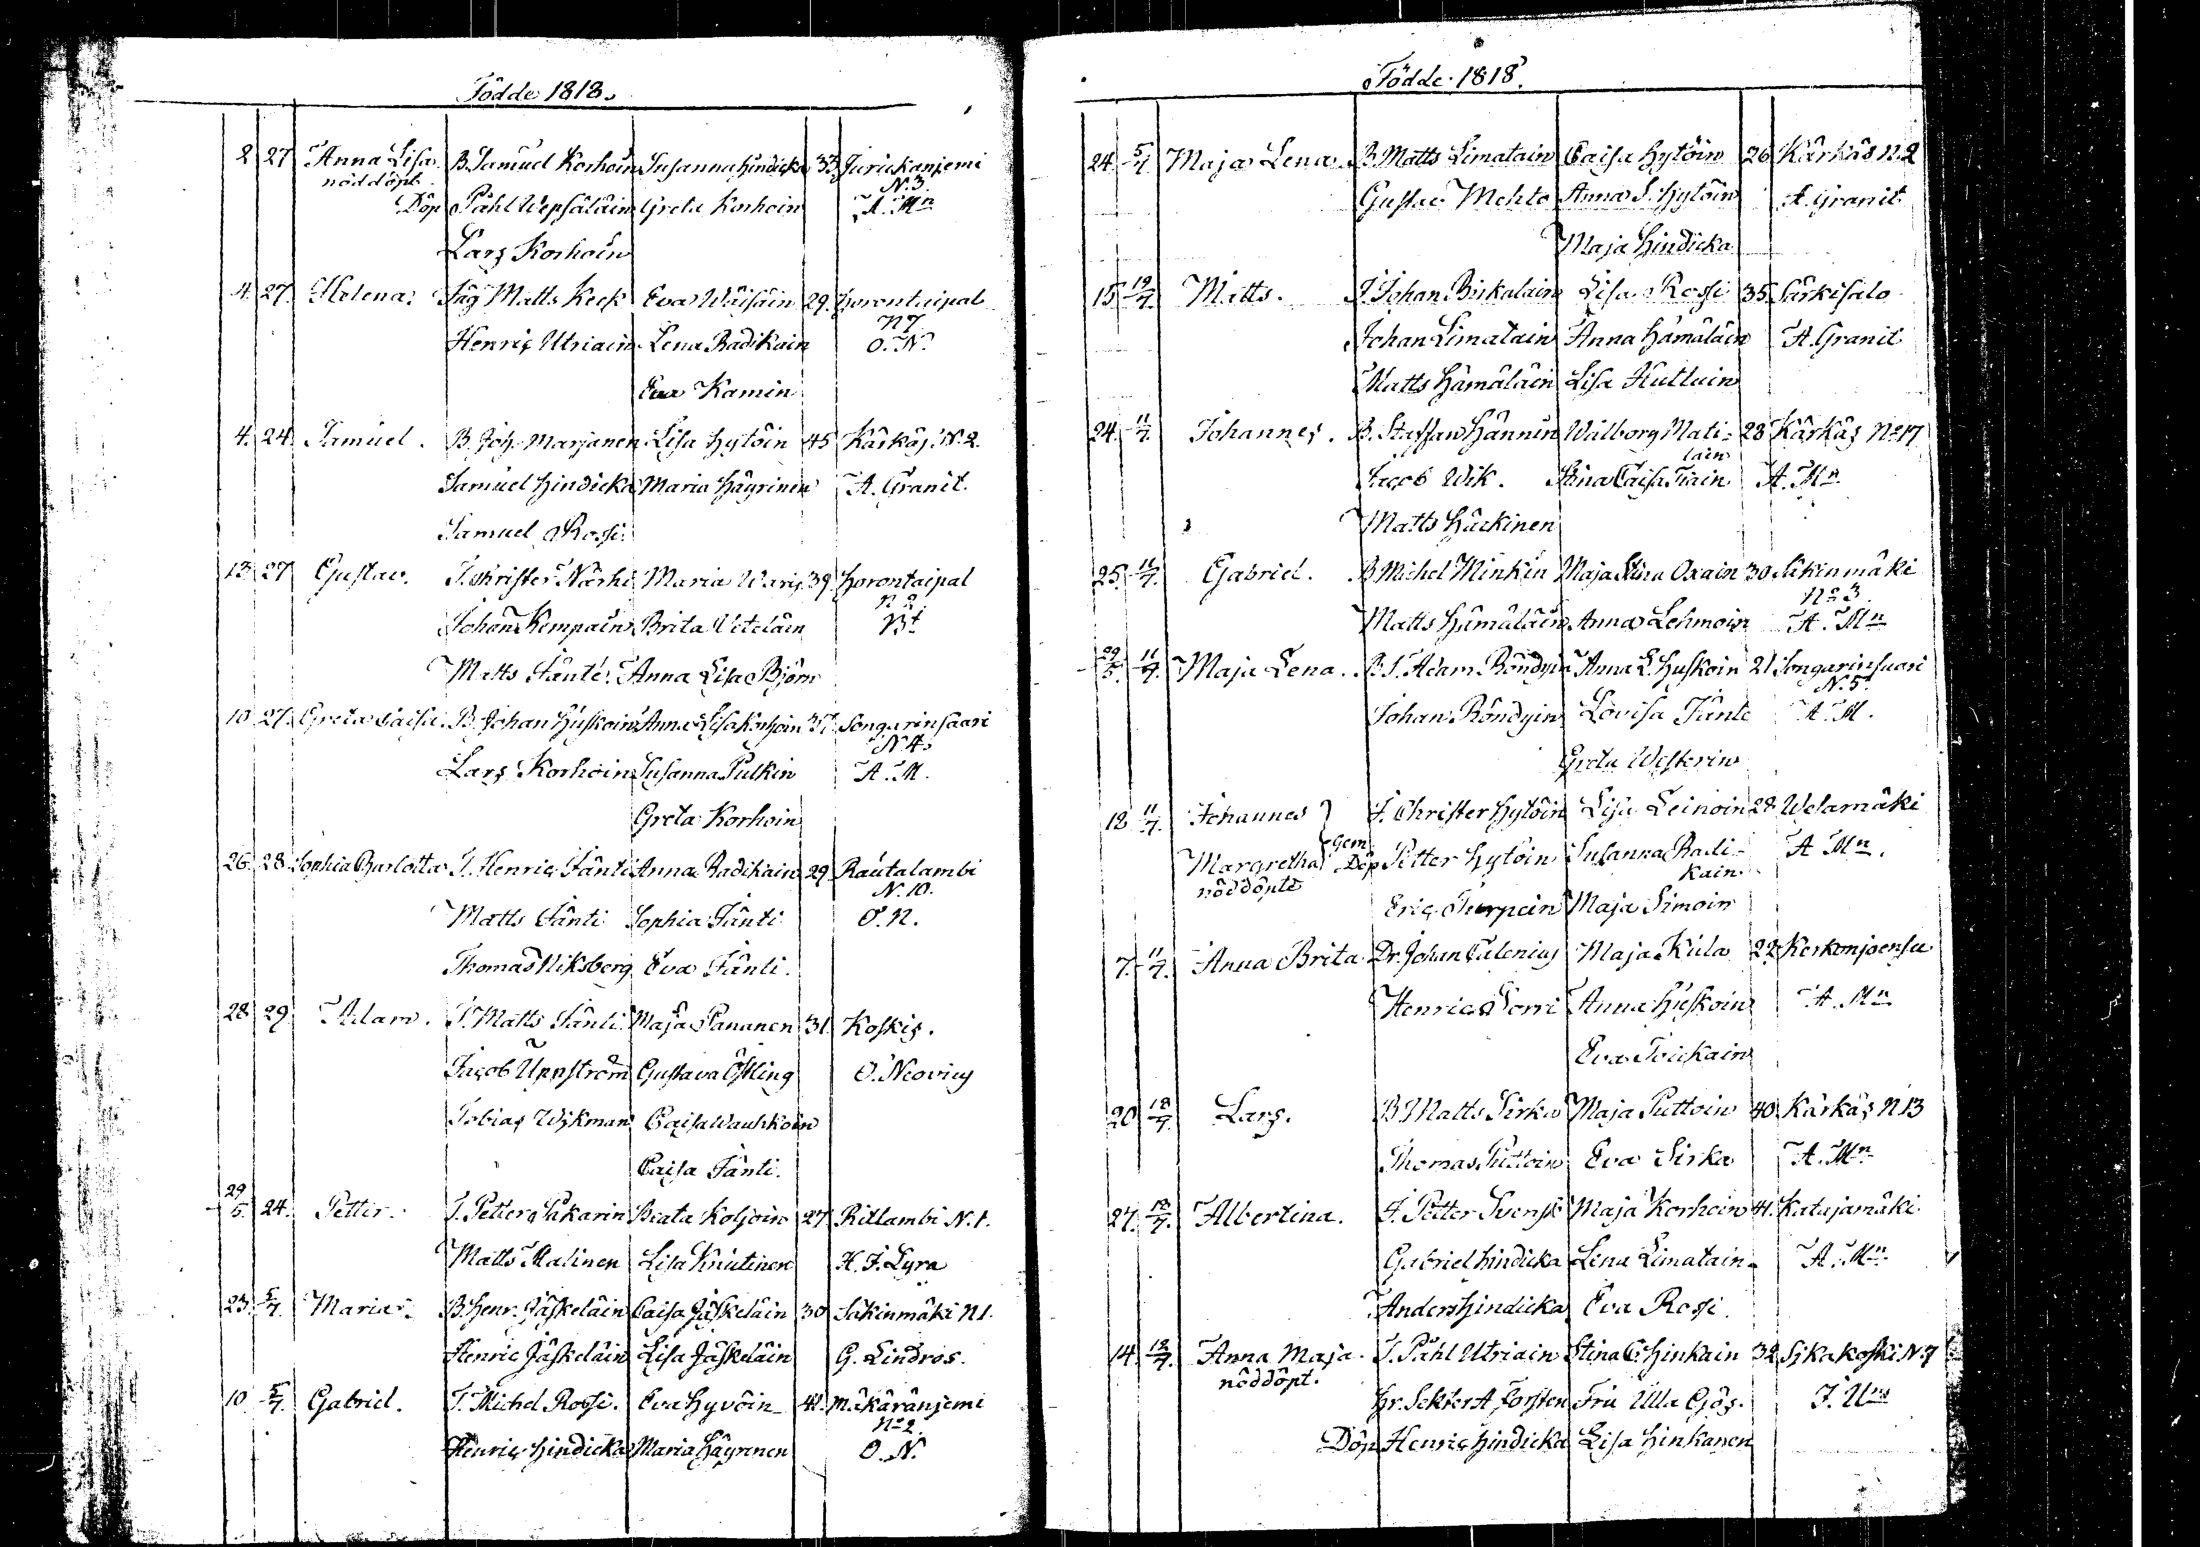 Födde 1818.
2 27 Anna Lisa B. Samuel Korhoin Susanna Hindicka 33 Jurickaniemi
nöddöpt. N. 3.
Döp Påhl Wepsäläin Greta Korhoin A. Mn
Lars Korhoin
4. 27. Helena. Matts Keck Eva Wäisäin 29. Horontaipal
N 7
Henric Utriain Lena Radikain O. N.
Eva Kamin
4. 24. Samuel. B. Joh. Marjanen Lisa Hytöin 45 Kärkäs N. 2.
Samuel Hindicka Maria Häyrinen A. Granit.
Samuel Rossi.
13. 27 Gustav. T. Christer Närhi Maria Waris 39. Horontaipal
N 2.
Johan Kempain Brita Veteläin Bt
Matts Jänti. Anna Lisa Björn
10. 27. Greta Caisa. B. Johan Huskoin Anna Lisa Korhoin 37. Songarinsaari
N 4.
Lars Korhoin Susanna Pulkin A. M.
Greta Korhoin
26. 28. Sophia Charlotta I. Henric Jänti Anna Radikain 29. Rautalambi
N. 10.
Matts Jänti Sophia Jänti O. N.
Thomas Niksberg Eva Jänti.
28 29 Adam. I. Matts Jänti. Maja Pananen 31. Koskis.
Jacob Uppström Gustava Östling O. Neovius
Tobias Wikman Caisa Wauhkoin
Caisa Jänti.
29/5. 24. Petter. I. Petter Pakarin Beata Koljoin 27 Ritlambi N. 1.
Matts Malinen Lisa Knutinen H. J. Lyra
23. 5/7. Maria. B. Henr. Jäskeläin Caisa Jäskeläin 30 Säkinmäki N 1.
Henric Jäskeläin Lisa Jäskeläin G. Lindros.
10 5/7. Gabriel. T. Michel Rossi. Eva Hyvöin 42. Mäkäräniemi
No 2.
Henric Hindicka Maria Häyrinen O. N.
Födde 1818.
24. 5/7. Maja Lena. B. Matts Limatain Caisa Hytöin 26 Kärkäs N. 2
Gustav Mehto Anna S. Hytöin A. Granit
Maja Hindicka
15. 12/7. Matts. I. Johan Birkalain Lisa Rossi 35 Särkisalo
Johan Limatain Anna Hämäläin A. Granit
Matts Hämäläin Lisa Huttuin
24. 11/7. Johannes. B. Staffan Hännin Walborg Mati- 28 Kärkäs No 17
lain
Jacob Wik. Stina Caisa Tiain A. Mn
Matts Häckinen
25. 11/7. Gabriel. B. Michel Minkin Maja Stina Oxain 30 Säkinmäki
No 3.
Matts Hämäläin Anna Lehmoin A. Mn
29/5. 11/7. Maja Lena. B. S. Adam Röndyin Anna L. Huskoin 21 Songarinsaari
N. 5.
Johan Röndyin Lovisa Jänti A. M.
Greta Westerin
18 11/7. Johannes I. Christer Hytöin Lisa Leinoin 28 Welamäki
Gem.
Margretha Döp Petter Hytöin Susanna Radi- A Mn.
nöddöpte kain.
Eric Turpein Maja Simoin
7. 11/7. Anna Brita Dr. Johan Calenius Maja Kula 22 Kerkonjoensu
Henric Torri Anna Huskoin A. Mn
Eva Toickain
20 18/7. Lars. B Matts Sirka Maja Puttoin 40 Kärkäs N 13
Thomas Puttoin Eva Sirka A. Mn
27. 12/7. Albertina. I. Petter Svensk Maja Korhoin 41. Katajamäki.
Gabriel Hindicka Lena Limatain A. Mn
Anders Hindicka Eva Rossi.
14. 12/7. Anna Maja. I. Påhl Utriain Stina C. Hinkain 32 Sikakoski N. 7
nöddöpt. Hr. Sekter A Forsten Fru Ulla Gjös. J. Um
Döp Henric Hindicka Lisa Hinkanen